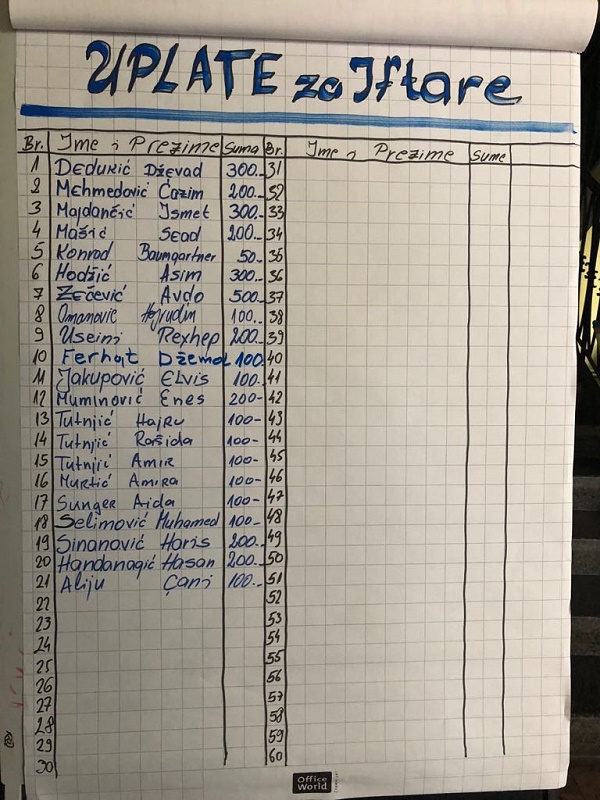 UPLATE za Iftare
Br. Ime i Prezime Suma Br. Ime i Prezime Sume
1 Dedukić Dževad 300.- 31
2 Mehmedović Ćazim 200.- 32
3 Majdančić Ismet 300.- 33
4 Mašić Sead 200.- 34
5 Konrad Baumgartner 50.- 35
6 Hodžić Asim 300.- 36
7 Zečević Avdo 500.- 37
8 Omanović Hajrudin 100.- 38
9 Useini Rexhep 200.- 39
10 Ferhat Džemal 100. 40
11 Jakupović Elvis 100. 41
12 Muminović Enes 200- 42
13 Tutnjić Hajru 100- 43
14 Tutnjić Rašida 100- 44
15 Tutnjić Amir 100- 45
16 Murtić Amira 100- 46
17 Sunger Aida 100- 47
18 Selimović Muhamed 100- 48
19 Sinanović Haris 200.- 49
20 Handanagić Hasan 200.- 50
21 Aliju Çani 100.- 51
22 52
23 53
24 54
25 55
26 56
27 57
28 58
29 59
30 60
Office
World